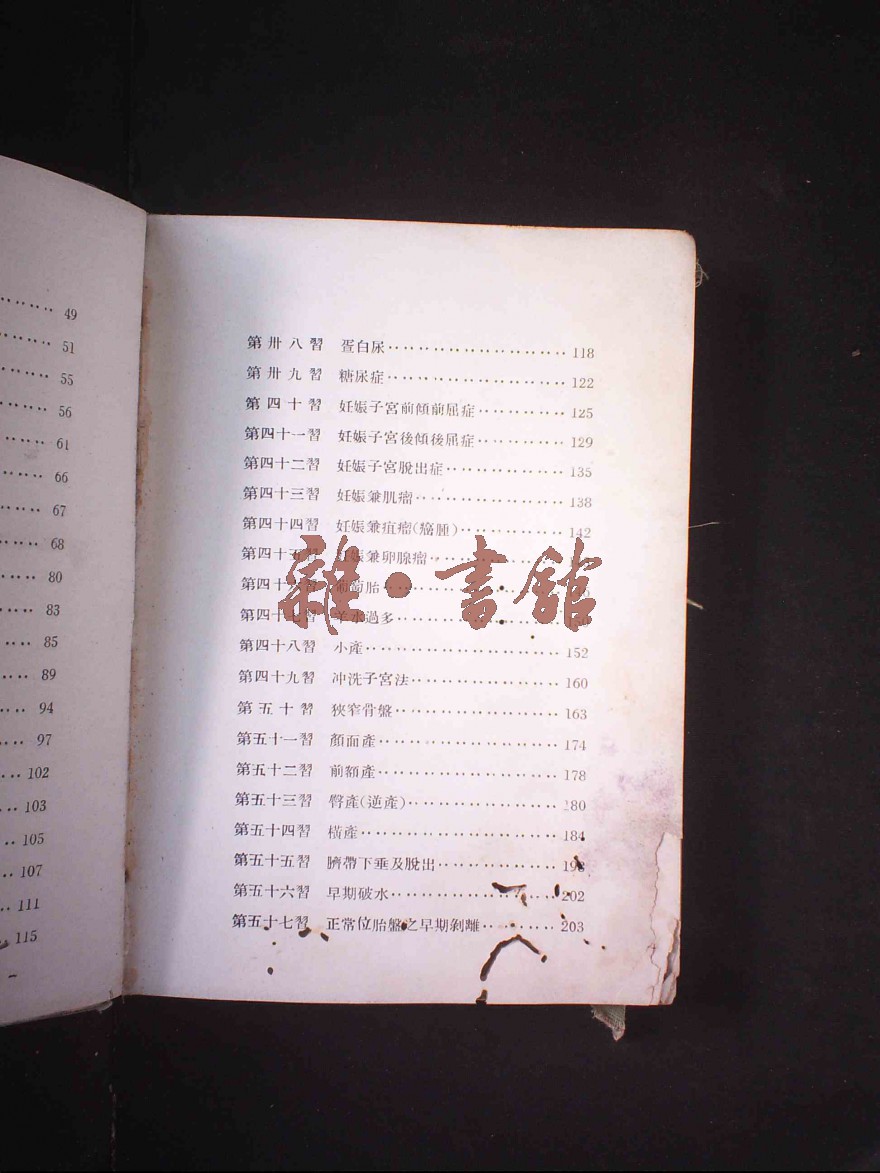 49
51
55
56
61
66
67
68
80
83
85
89
94
97
102
103
105
107
111
115
第卅八習 蛋白尿 118
第卅九習 糖尿症 122
第四十習 妊娠子宮前傾前屈症 125
第四十一習 妊娠子宮後傾後屈症 129
第四十二習 妊娠子宮脫出症 135
第四十三習 妊娠兼肌瘤 138
第四十四習 妊娠兼疽瘤(癌腫) 142
第四十五習 妊娠兼卵腺瘤
第四十六習 葡萄胎
第四十七習 羊水過多
第四十八習 小產 152
第四十九習 冲洗子宮法 160
第五十習 狹窄骨盤 163
第五十一習 顏面產 174
第五十二習 前額產 178
第五十三習 臀產(逆產) 180
第五十四習 橫產 184
第五十五習 臍帶下垂及脫出
第五十六習 早期破水 202
第五十七習 正常位胎盤之早期剝離 203
雜·書館